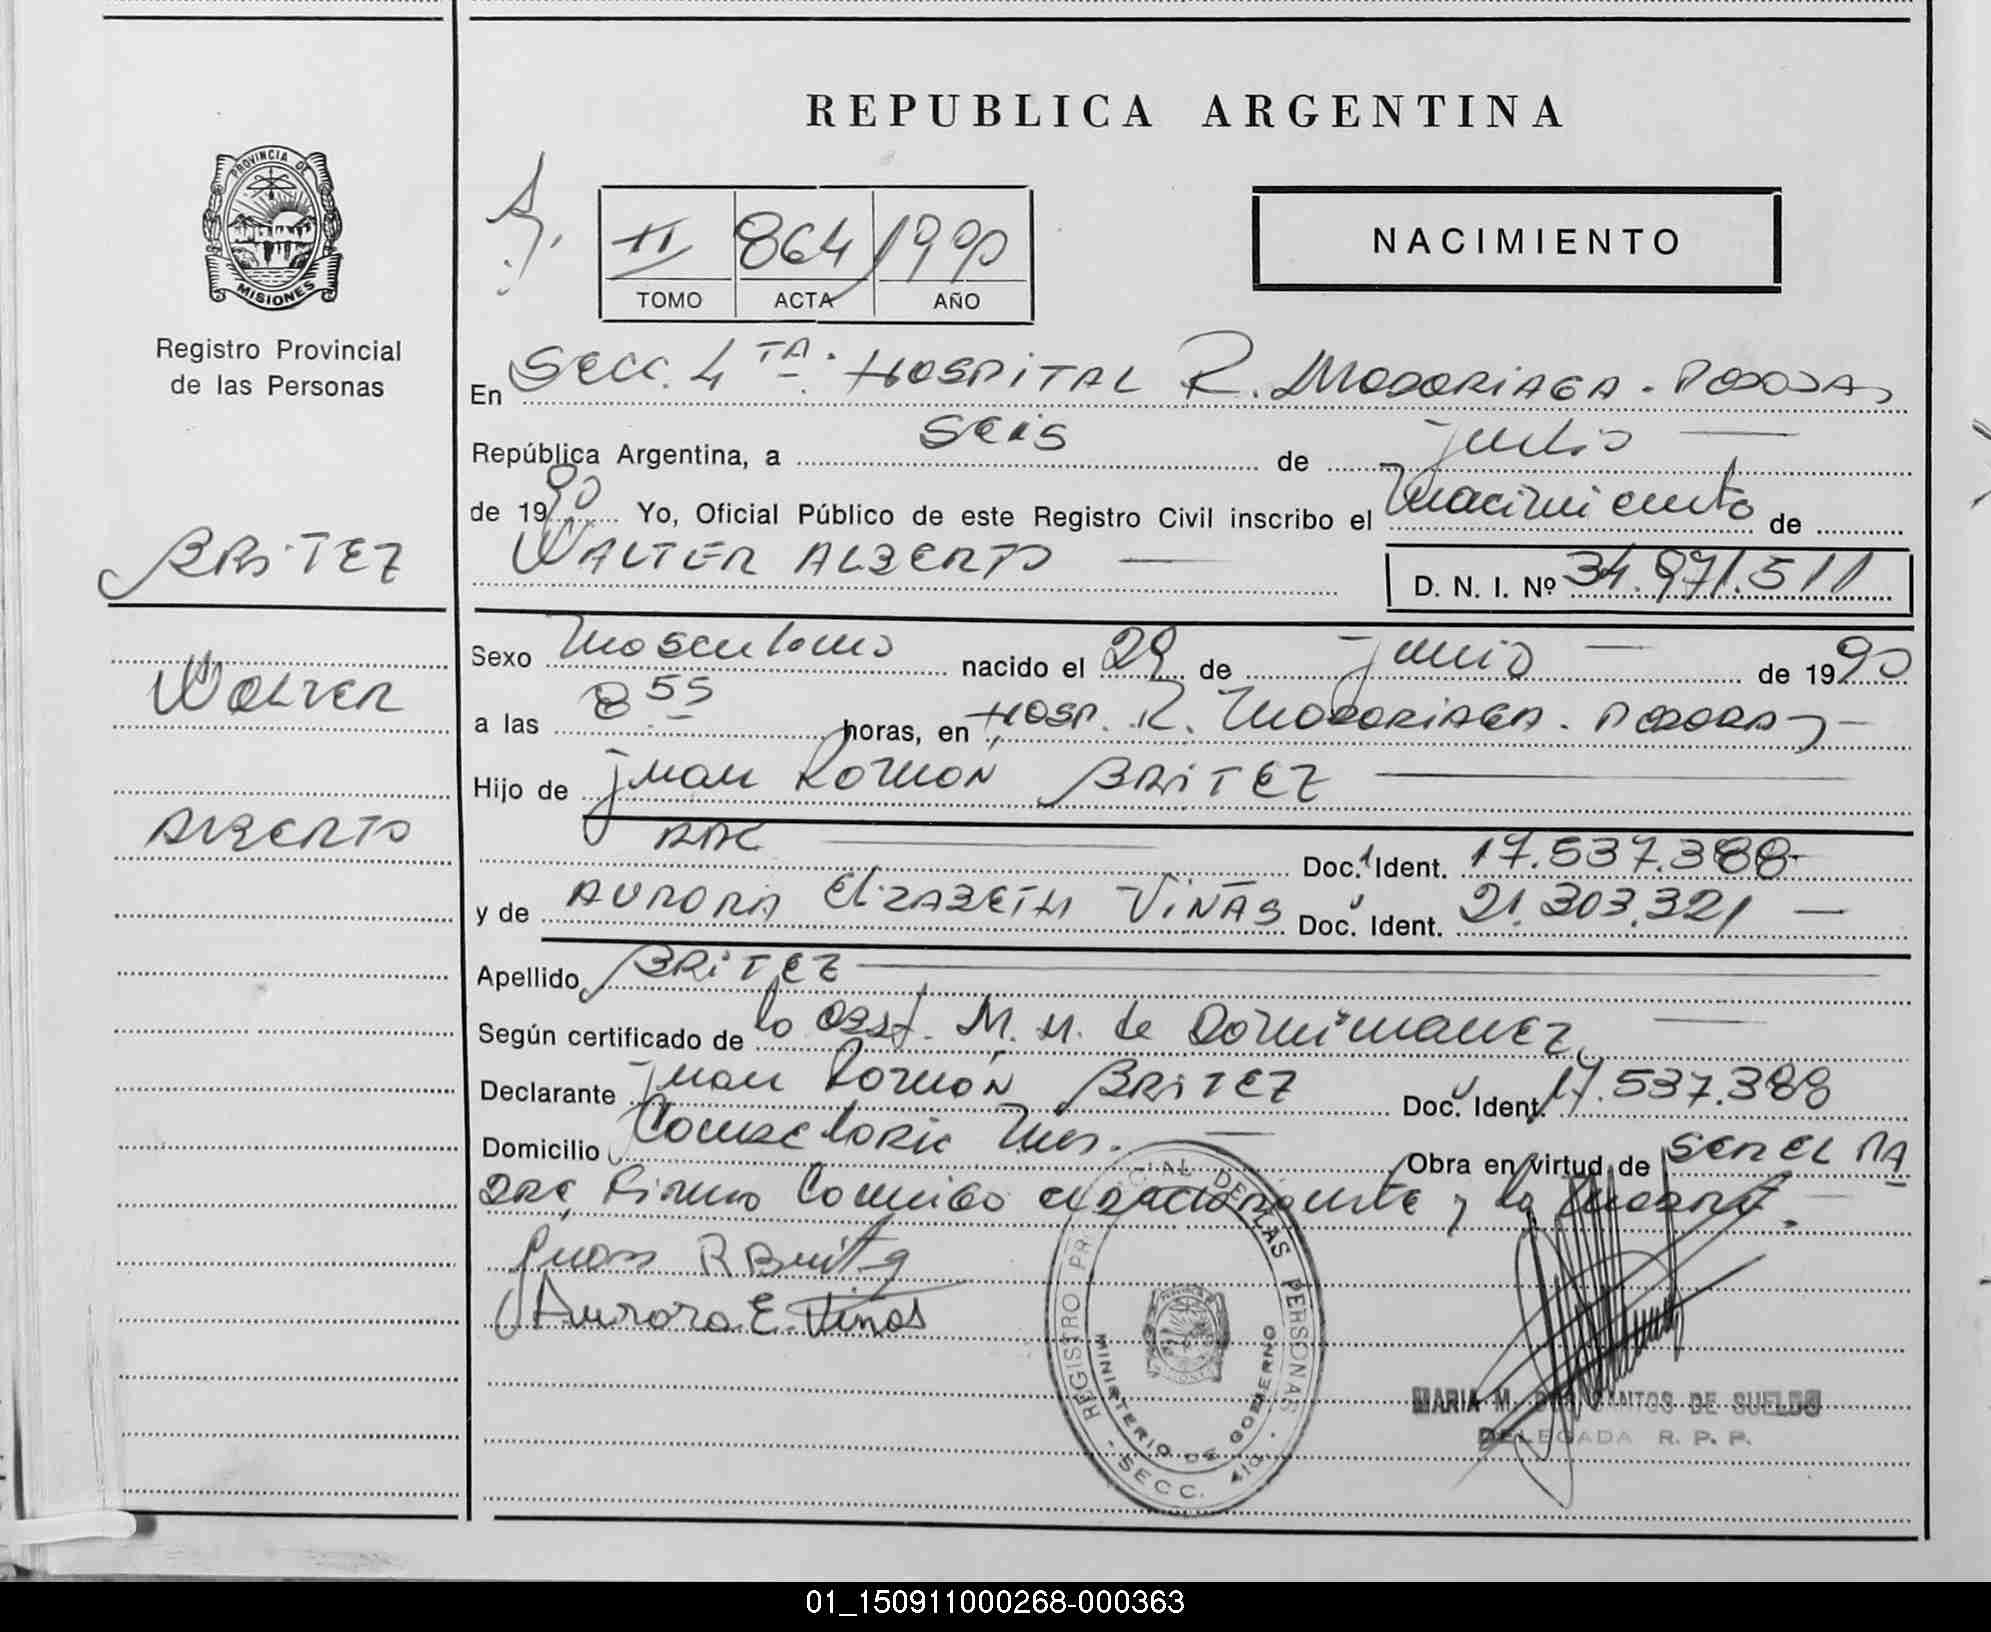 REPUBLICA ARGENTINA
PROVINCIA DE
MISIONES
Registro Provincial
de las Personas
II 864 1990
TOMO ACTA AÑO
NACIMIENTO
En Secc. 4 TA. HOSPITAL R. MADARIAGA - POSADAS
República Argentina, a seis de julio
de 1990 Yo, Oficial Público de este Registro Civil inscribo el nacimiento de
WALTER ALBERTO
D. N. I. Nº 34.971.511
BRITEZ
WALTER
ALBERTO
Sexo masculino nacido el 29 de junio de 1990
a las 8.55 horas, en Hosp. R. MADARIAGA - POSADAS
Hijo de Juan Ramón BRITEZ
Doc. Ident. 17.537.388
y de AURORA ELIZABETH VIÑAS Doc. Ident. 21.303.321
Apellido BRITEZ
Según certificado de la Obst. M. M. de
Declarante Juan Ramón BRITEZ Doc. Ident. 17.537.388
Domicilio Obra en virtud de SER EL PA
DRE, Firma Conmigo y la madre.
Juan R Britez
Aurora E. Viñas
REGISTRO PROVINCIAL DE LAS PERSONAS
MINISTERIO DE GOBIERNO
SECC. 4ta.
MARIA M. DOS SANTOS DE SUELDO
DELEGADA R. P. P.
01_150911000268-000363